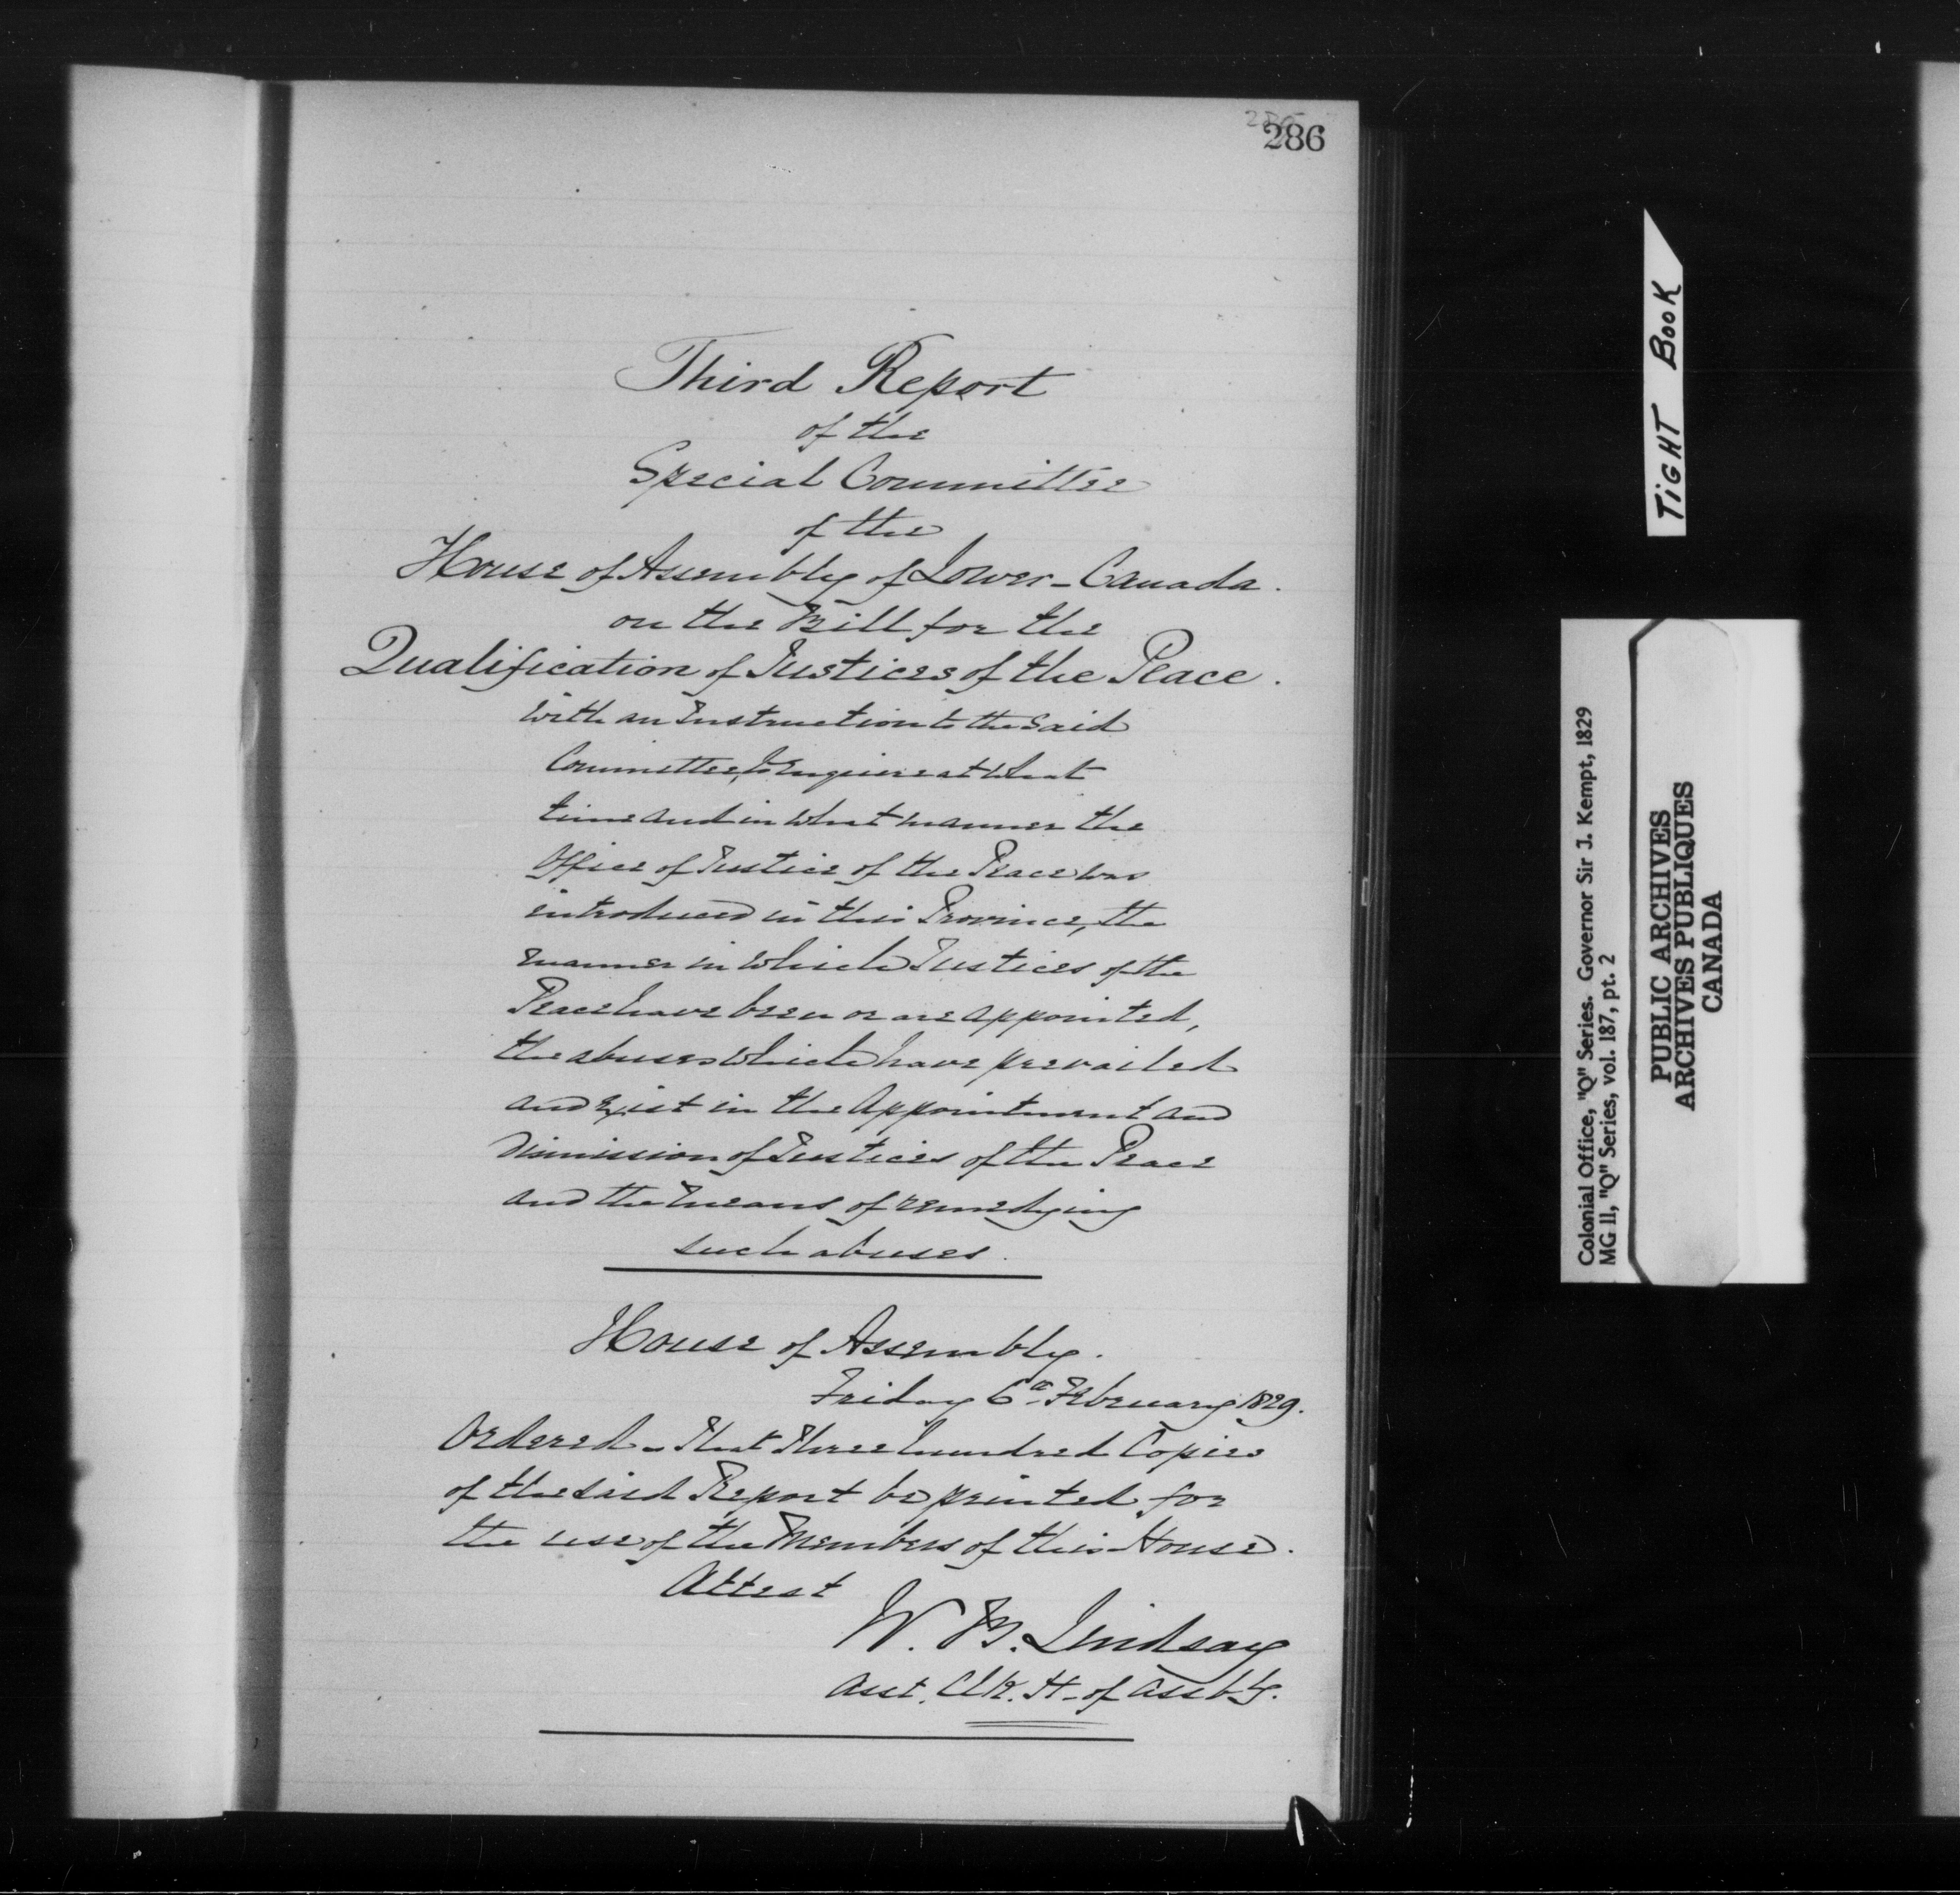 286
Third Report
of the
Special Committee
of the
House of Assembly of Lower-Canada.
on the Bill for the
Qualification of Justices of the Peace.
with an Instruction to the said
Committee, to Enquire at what
time and in what manner the
Office of Justice of the Peace was
introduced in this Province, the
manner in which Justices of the
Peace have been or are appointed,
the abuses which have prevailed
and Exist in the Appointment and
Dismission of Justices of the Peace
and the means of remedying
such abuses.
House of Assembly.
Friday 6th February 1829.
Ordered - That Three hundred Copies
of the said Report be printed for
the use of the Members of this House.
Attest
W. B. Lindsay
Asst. Clk. H. of Assbly.
TIGHT BOOK
Colonial Office, "Q" Series. Governor Sir J. Kempt, 1829
MG 11, "Q" Series, vol. 187, pt. 2
PUBLIC ARCHIVES
ARCHIVES PUBLIQUES
CANADA